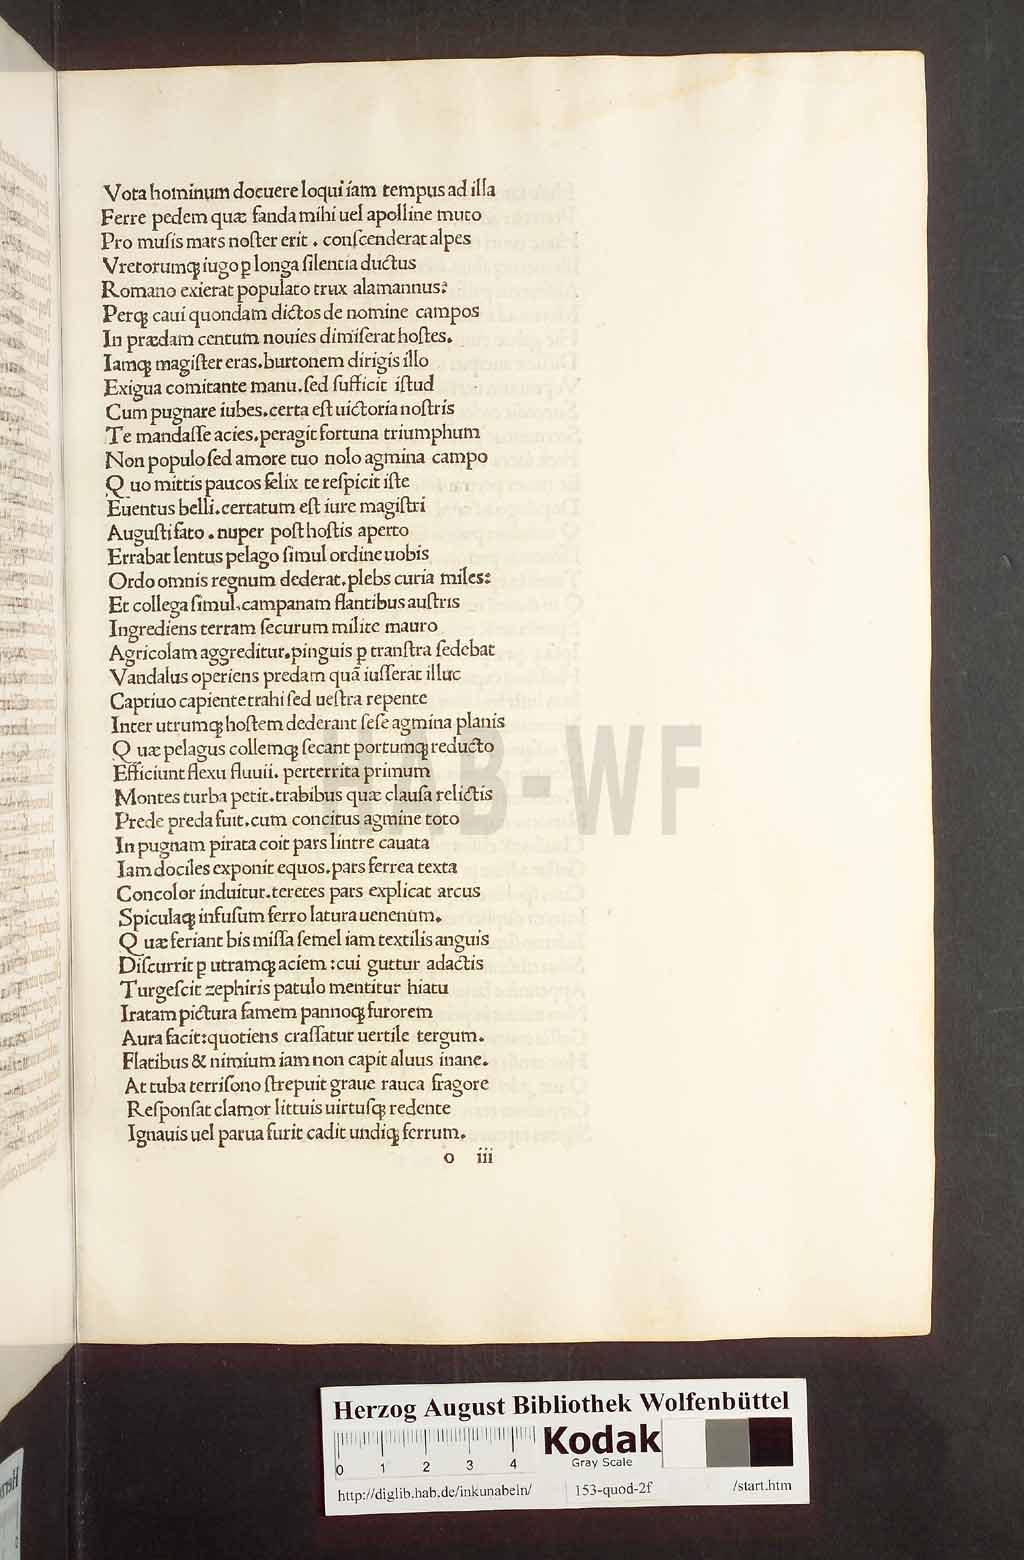 Vota hominum docuere loqui iam tempus ad illa
Ferre pedem quæ fanda mihi uel apolline muto
Pro muſis mars noſter erit . conſcenderat alpes
Vretorumqꝫ iugo ꝑ longa ſilentia ductus
Romano exierat populato trux alamannus:
Perqꝫ caui quondam dictos de nomine campos
In prædam centum nouies dimiſerat hoſtes.
Iamqꝫ magiſter eras.burtonem dirigis illo
Exigua comitante manu.ſed ſufficit iſtud
Cum pugnare iubes.certa eſt uictoria noſtris
Te mandaſſe acies.peragit fortuna triumphum
Non populo ſed amore tuo nolo agmina campo
Q uo mittis paucos felix te reſpicit iſte
Euentus belli.certatum eſt iure magiſtri
Auguſti fato . nuper poſt hoſtis aperto
Errabat lentus pelago ſimul ordine uobis
Ordo omnis regnum dederat.plebs curia miles:
Et collega ſimul.campanam flantibus auſtris
Ingrediens terram ſecurum milite mauro
Agricolam aggreditur.pinguis ꝑ tranſtra ſedebat
Vandalus operiens predam quã iuſſerat illuc
Captiuo capiente trahi ſed ueſtra repente
Inter utrumqꝫ hoſtem dederant ſeſe agmina planis
Q uæ pelagus collemqꝫ ſecant portumqꝫ reducto
Efficiunt flexu fluuii. perterrita primum
Montes turba petit.trabibus quæ clauſa relictis
Prede preda fuit.cum concitus agmine toto
In pugnam pirata coit pars lintre cauata
Iam dociles exponit equos.pars ferrea texta
Concolor induitur.teretes pars explicat arcus
Spiculaqꝫ infuſum ferro latura uenenum.
Q uæ feriant bis miſſa ſemel iam textilis anguis
Diſcurrit ꝑ utramqꝫ aciem:cui guttur adactis
Turgeſcit zephiris patulo mentitur hiatu
Iratam pictura famem pannoqꝫ furorem
Aura facit:quotiens craſſatur uertile tergum.
Flatibus & nimium iam non capit aluus inane.
At tuba terriſono ſtrepuit graue rauca fragore
Reſponſat clamor littuis uirtuſqꝫ redente
Ignauis uel parua furit cadit undiqꝫ ferrum.
o iii
HAB-WF
Herzog August Bibliothek Wolfenbüttel
Kodak
Gray Scale
0 1 2 3 4
http://diglib.hab.de/inkunabeln/ 153-quod-2f /start.htm